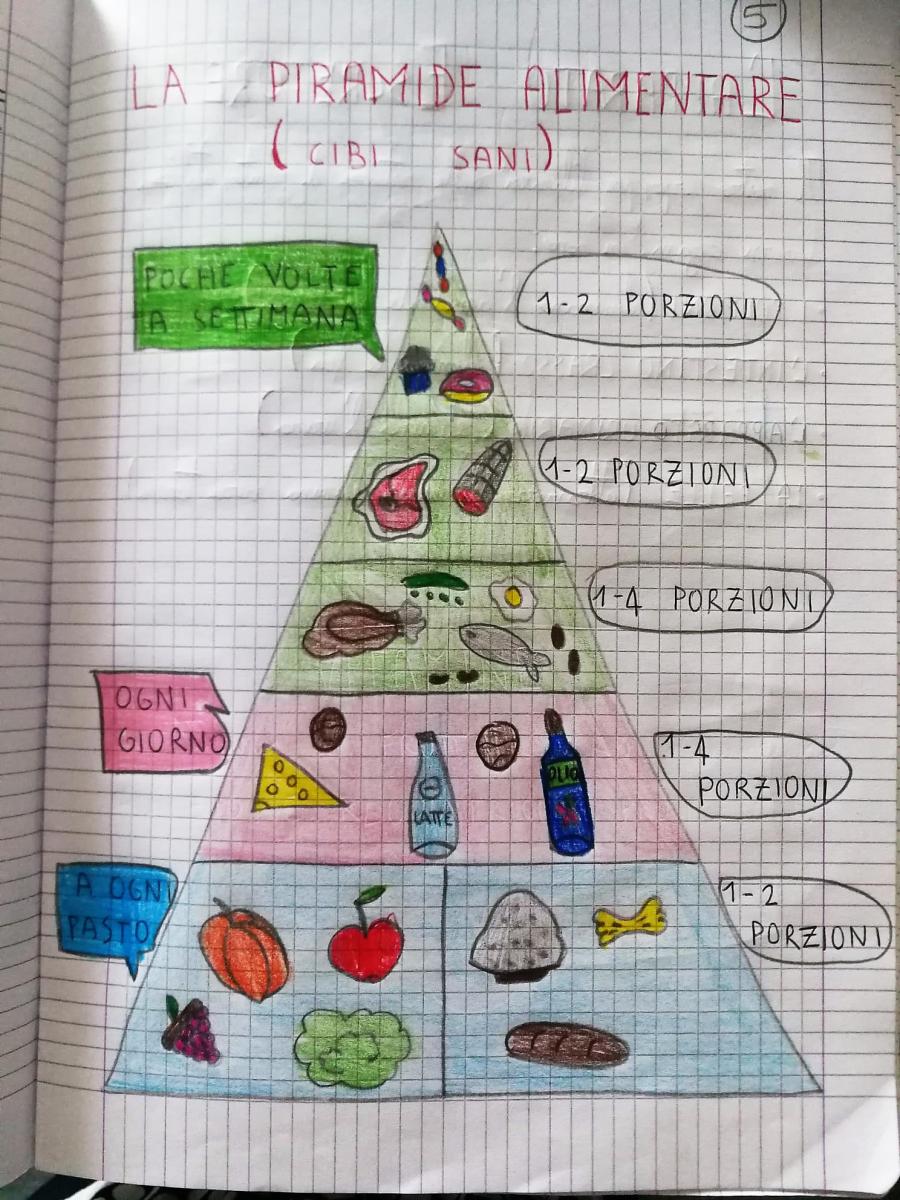 5
LA PIRAMIDE ALIMENTARE
(CIBI SANI)
POCHE VOLTE
A SETTIMANA
1-2 PORZIONI
1-2 PORZIONI
1-4 PORZIONI
OGNI
GIORNO
1-4
PORZIONI
OLIO
LATTE
A OGNI
PASTO
1-2
PORZIONI